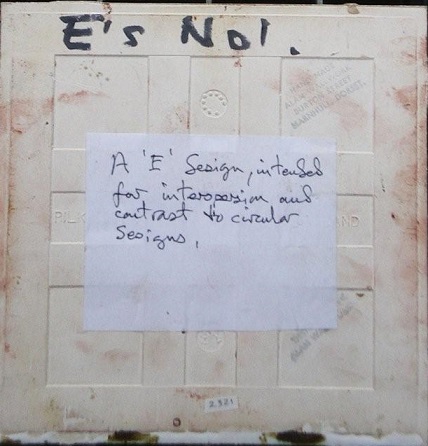 E's No1.
A 'E' Design, intended
for interspersion and
contrast to circular
Designs.
PILK
ND
2.321